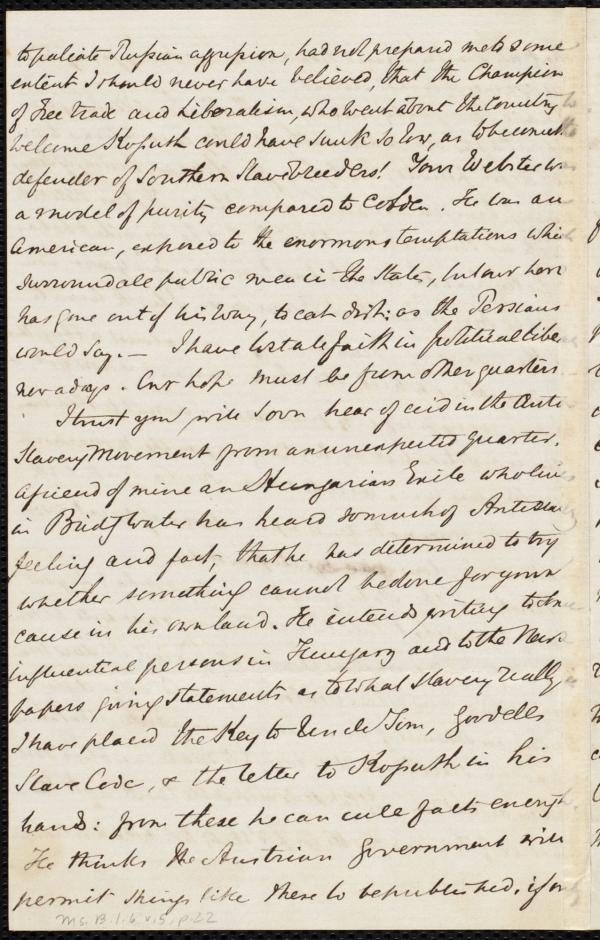 to paliate Russian aggression, had not prepared me to some
extent I should never have believed, that the Champion
of Free trade and Liberalism, who went about the Country to
welcome Kossuth could have sunk so low, as to become the
defender of Southern Slavebreeders! Your Webster was
a model of purity compared to Cobden. He was an
American, exposed to the enormous temptations which
surround all public men in the States, but our hero
has gone out of his way, to eat dirt: as the Persians
would say. — I have lost all faith in political
now adays. Our hope must be from other quarters
I trust you will soon hear of aid in the Anti
Slavery Movement from an unexpected quarter.
A friend of mine an Hungarian Exile who lives
in Bridgwater has heard so much of Antislavery
feeling and fact, that he has determined to try
whether something cannot be done for your
cause in his own land. He intends writing to
influential persons in Hungary and to the News
papers giving statements as to what Slavery really is
I have placed the Key to Uncle Tom, Goodells
Slave Code, & the letter to Kossuth in his
hands: from these he can cull facts enough.
He thinks the Austrian Government will
permit things like these to be published, if only
Ms. B.1.6 v.5, p.22